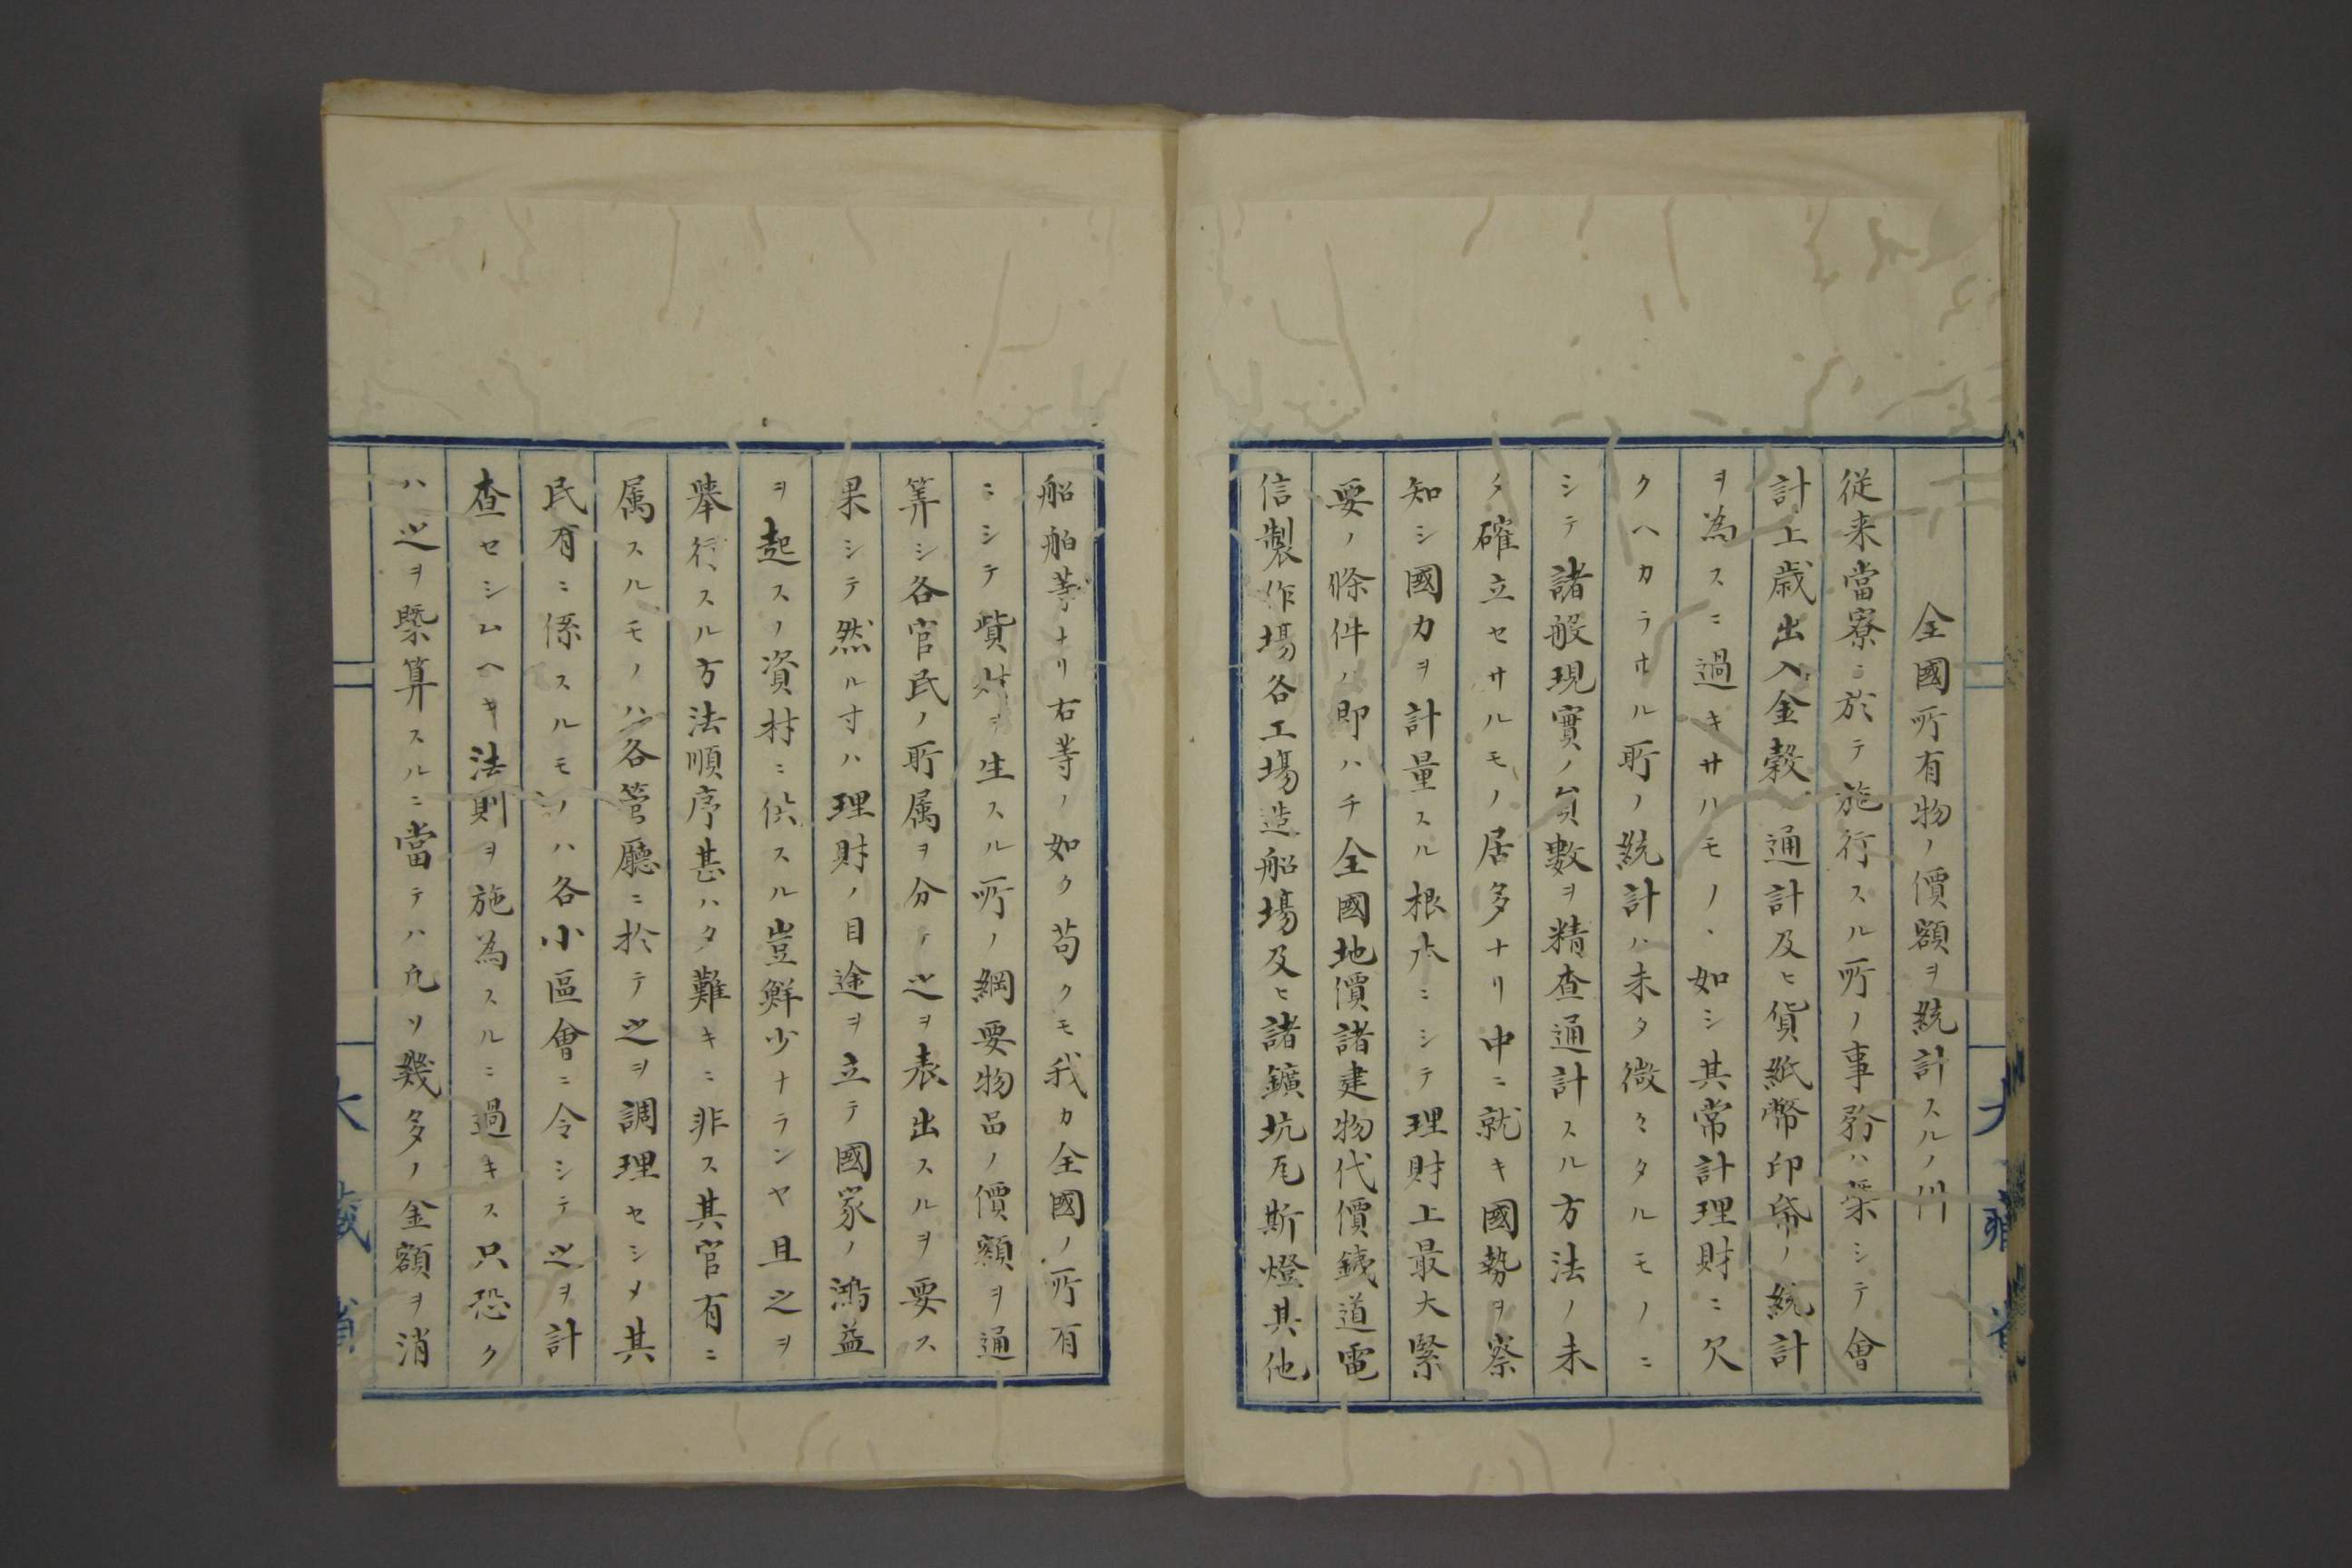 全國所有物ノ價額ヲ統計スルノ
従来當寮ニ於テ施行スル所ノ事務ハ槩シテ會
計上歳出入金穀ノ通計及ヒ貨紙幣印帋ノ統計
ヲ為スニ過キサルモノヽ如シ其常計理財ニ欠
クヘカラサル所ノ統計ハ未タ微々タルモノニ
シテ諸般現實ノ員數ヲ精査通計スル方法ノ未
タ確立セサルモノ居多ナリ中ニ就キ國勢ヲ察
知シ國力ヲ計量スル根本ニシテ理財上最大緊
要ノ條件ハ即ハチ全國地價諸建物代價鉄道電
信製作塲各工塲造船塲及ヒ諸鑛坑瓦斯燈其他
船舶等ナリ右等ノ如ク苟クモ我カ全國ノ所有
ニシテ貲財ヲ生スル所ノ綱要物品ノ價額ヲ通
算シ各官民ノ所属ヲ分テ之ヲ表出スルヲ要ス
果シテ然ル寸ハ理財ノ目途ヲ立テ國家ノ鴻益
ヲ起スノ資材ニ供スル豈鮮少ナランヤ且之ヲ
舉行スル方法順序甚ハタ難キニ非ス其官有ニ
属スルモノハ各管廳ニ於テ之ヲ調理セシメ其
民有ニ係スルモノハ各小區會ニ令シテ之ヲ計
査セシムヘキ法則ヲ施為スルニ過キス只恐ク
ハ之ヲ槩算スルニ當テハ凢ソ幾多ノ金額ヲ消
大藏省
大藏省